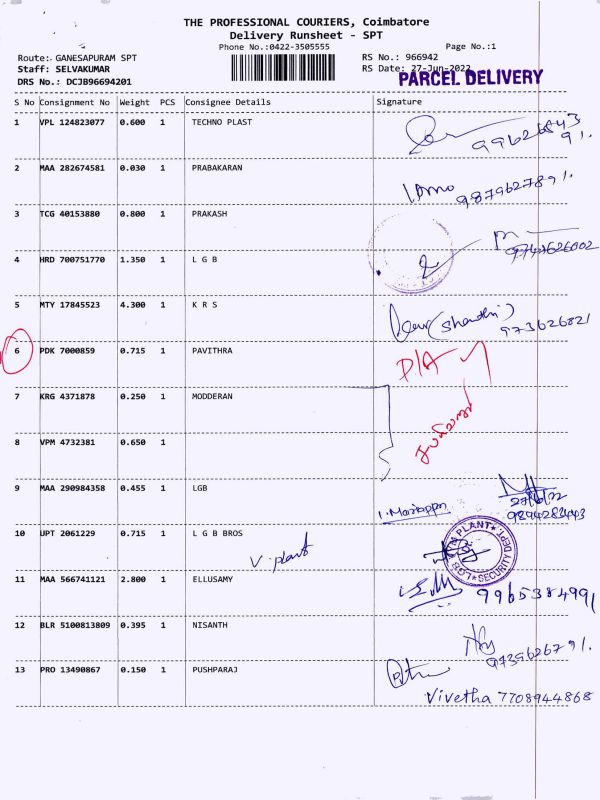 THE PROFESSIONAL COURIERS, Coimbatore
Delivery Runsheet - SPT
Phone No.:0422-3505555 Page No.:1
Route: GANESAPURAM SPT RS No.: 966942
Staff: SELVAKUMAR RS Date: 27-Jun-2022
DRS No.: DCJB96694201 PARCEL DELIVERY
S No Consignment No Weight PCS Consignee Details Signature
1 VPL 124823077 0.600 1 TECHNO PLAST
2 MAA 282674581 0.030 1 PRABAKARAN
3 TCG 40153880 0.800 1 PRAKASH
4 HRD 700751770 1.350 1 L G B
5 MTY 17845523 4.300 1 K R S
(Shanthi) 973626821
6 PDK 7000859 0.715 1 PAVITHRA D/A
7 KRG 4371878 0.250 1 MODDERAN
8 VPM 4732381 0.650 1
9 MAA 290984358 0.455 1 LGB
27/6/22
I. Mariappn 9894283443
10 UPT 2061229 0.715 1 L G B BROS
V. plant
PLANT SECURITY DEPT L.G.B
11 MAA 566741121 2.800 1 ELLUSAMY
9965384991
12 BLR 5100813809 0.395 1 NISANTH
13 PRO 13490867 0.150 1 PUSHPARAJ
Vivetha 7708944868